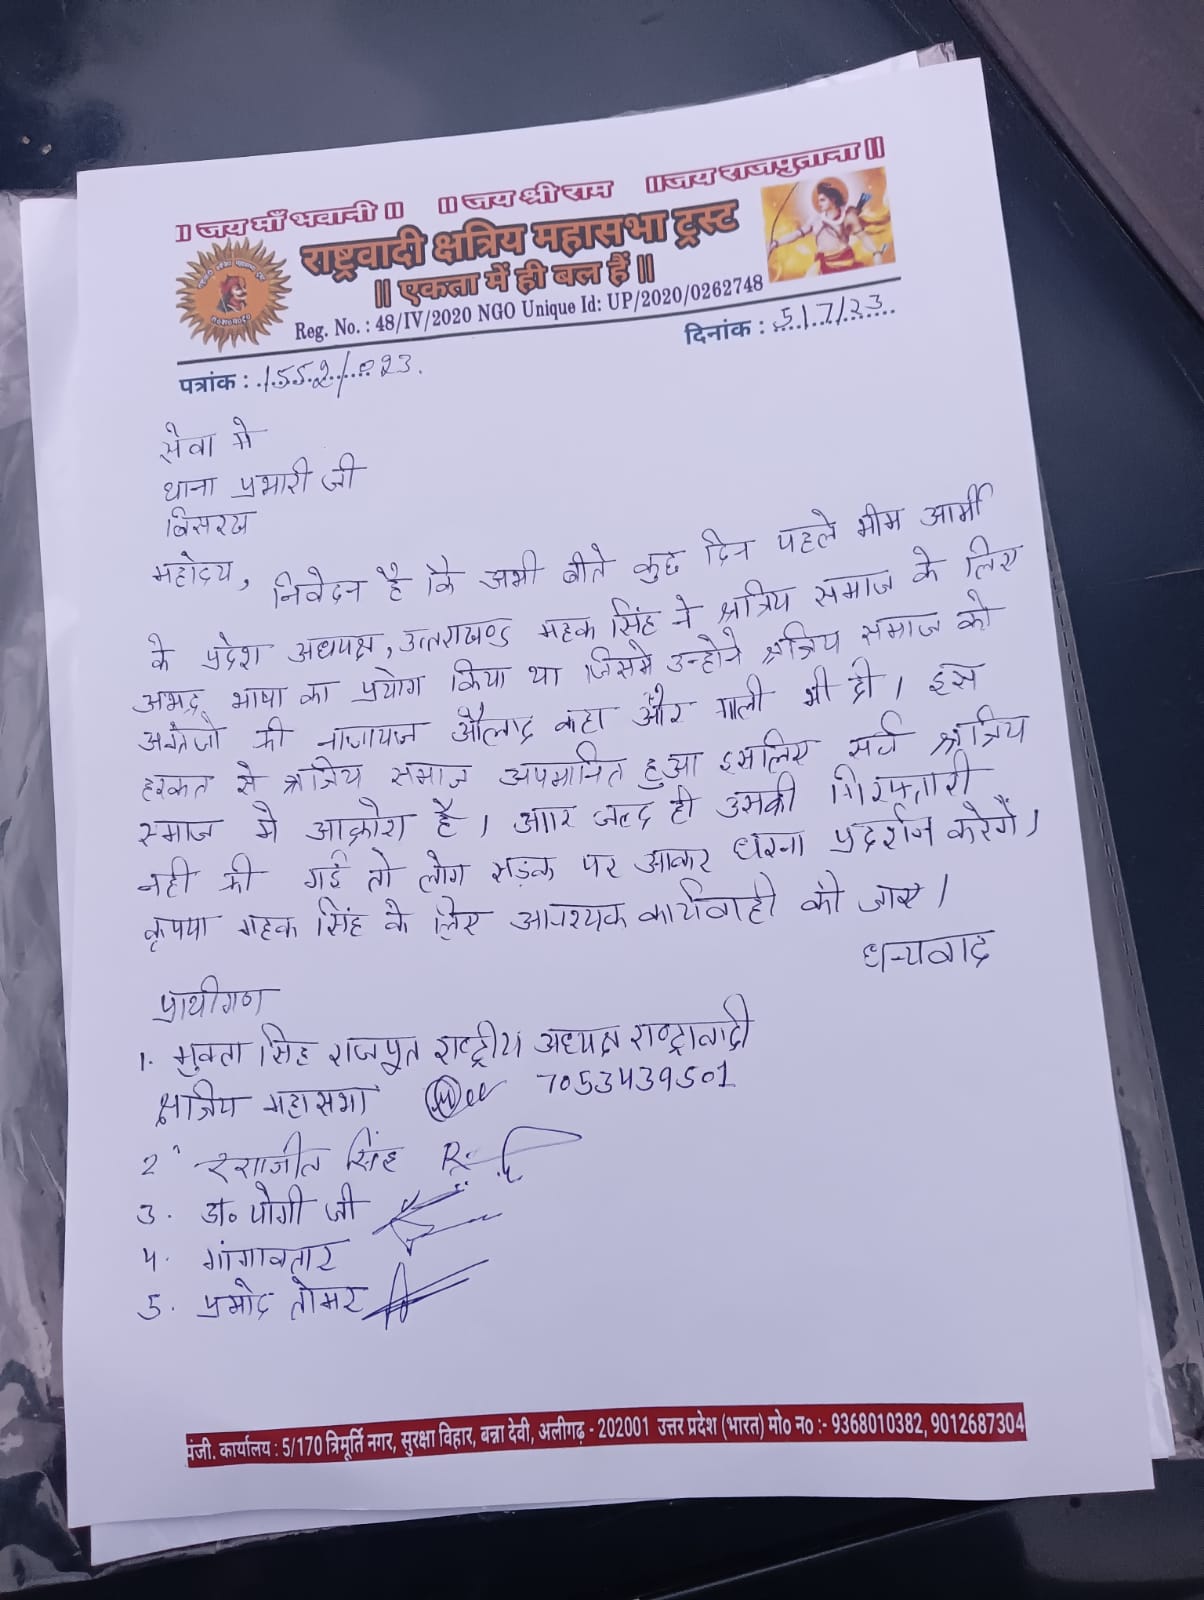 ॥ जय माँ भवानी ॥ ॥ जय श्री राम ॥ जय राजपुताना ॥
राष्ट्रवादी क्षत्रिय महासभा ट्रस्ट
॥ एकता में ही बल हैं ॥
Reg. No. : 48/IV/2020 NGO Unique Id: UP/2020/0262748
दिनांक : 5/7/23
पत्रांक : 1552/023.
सेवा मे
थाना प्रभारी जी
बिसरख
महोदय, निवेदन है कि अभी बीते कुछ दिन पहले भीम आर्मी
के प्रदेश अध्यक्ष, उत्तराखण्ड महक सिंह ने क्षत्रिय समाज के लिए
अभद्र भाषा का प्रयोग किया था जिसमे उन्होने क्षत्रिय समाज को
अंग्रेजो की नाजायज औलाद कहा और गाली भी दी। इस
हरकत से क्षत्रिय समाज अपमानित हुआ इसलिए सर्व क्षत्रिय
समाज मे आक्रोश है। अगर जल्द ही उसकी गिरफ्तारी
नही की गई तो लोग सड़क पर आकर धरना प्रदर्शन करेगें।
कृपया महक सिंह के लिए आवश्यक कार्यवाही की जाए।
धन्यवाद
प्रार्थीगण
1. मुक्ता सिंह राजपूत राष्ट्रीय अध्यक्ष राष्ट्रावादी
क्षत्रिय महासभा 7053439501
2 सिंह
3. डा० योगी जी
4. गंगावतार
5. प्रमोद तोमर
पंजी. कार्यालय : 5/170 त्रिमूर्ति नगर, सुरक्षा विहार, बन्ना देवी, अलीगढ़ - 202001 उत्तर प्रदेश (भारत) मो० न० :- 9368010382, 9012687304